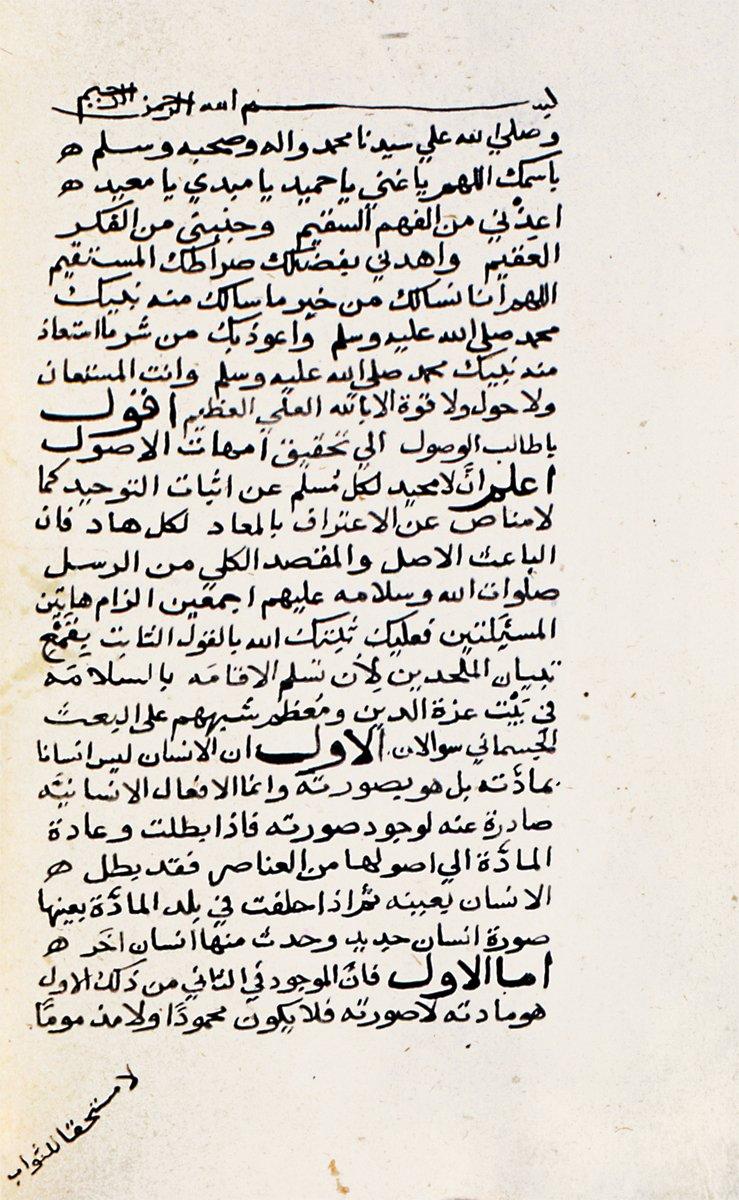 بسم الله الرحمن الرحيم
وصلى الله علي سيدنا محمد واله وصحبه وسلم ه
باسمك اللهم ياغني يا حميد يا مبدي يا معيد ه
اعذني من الفهم السقيم وجنبني من الفكر
العقيم واهدني بفضلك صراطك المستقيم
اللهم انا نسالك من خير ما سالك منه نبيك
محمد صلي الله عليه وسلم واعوذ بك من شر ما استعاذ
منه نبيك محمد صلي الله عليه وسلم وانت المستعان
ولا حول ولا قوة الا بالله العلي العظيم اقول
ياطالب الوصول الي تحقيق امهات الاصول
اعلم انَّ لا محيد لكل مُسلم عن اثبات التوحيد كما
لامناص عن الاعتراف بالمعاد لكل هاد فان
الباعث الاصل والمقصد الكلي من الرسل
صلوات الله وسلامه عليهم اجمعين الزام هاتين
المسئلتين فعليك ثبتك الله بالقول الثابت بِقَمْعِ
تبيان الملحدين لِأن تسلم الاقامَه بالسلامَه
في بَيْت عزة الدين ومُعظم شبههم على البعث
الجسماني سوالان الاول ان الانسان ليس انسانا
بمادّته بل هو بصورته وانما الافعال الانسانيَّه
صادرة عنه لوجود صورته فاذا بطلت وعادة
المادّة الي اصولها من العناصر فقد بطل ه
الانسان بعينه ثم اذا احلفت في بلد المادّة بعينها
صورة انسان جديد وحدث منها انسان اخَر ه
اما الاول فانّ الموجود في الثاني من ذلك الاول
هو مادته لاصورته فلا يكون محمودًا ولا مذمومًا
لا مستحقا للثواب